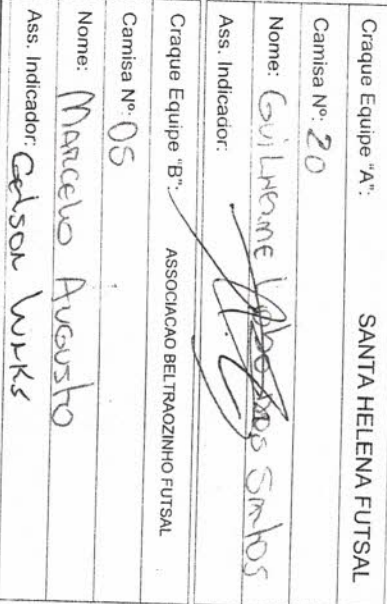 Craque Equipe "A": SANTA HELENA FUTSAL
Camisa Nº: 20
Nome: Guilherme dos Santos
Ass. Indicador:
Craque Equipe "B": ASSOCIACAO BELTRAOZINHO FUTSAL
Camisa Nº: 05
Nome: Marcelo Augusto
Ass. Indicador: Gelson